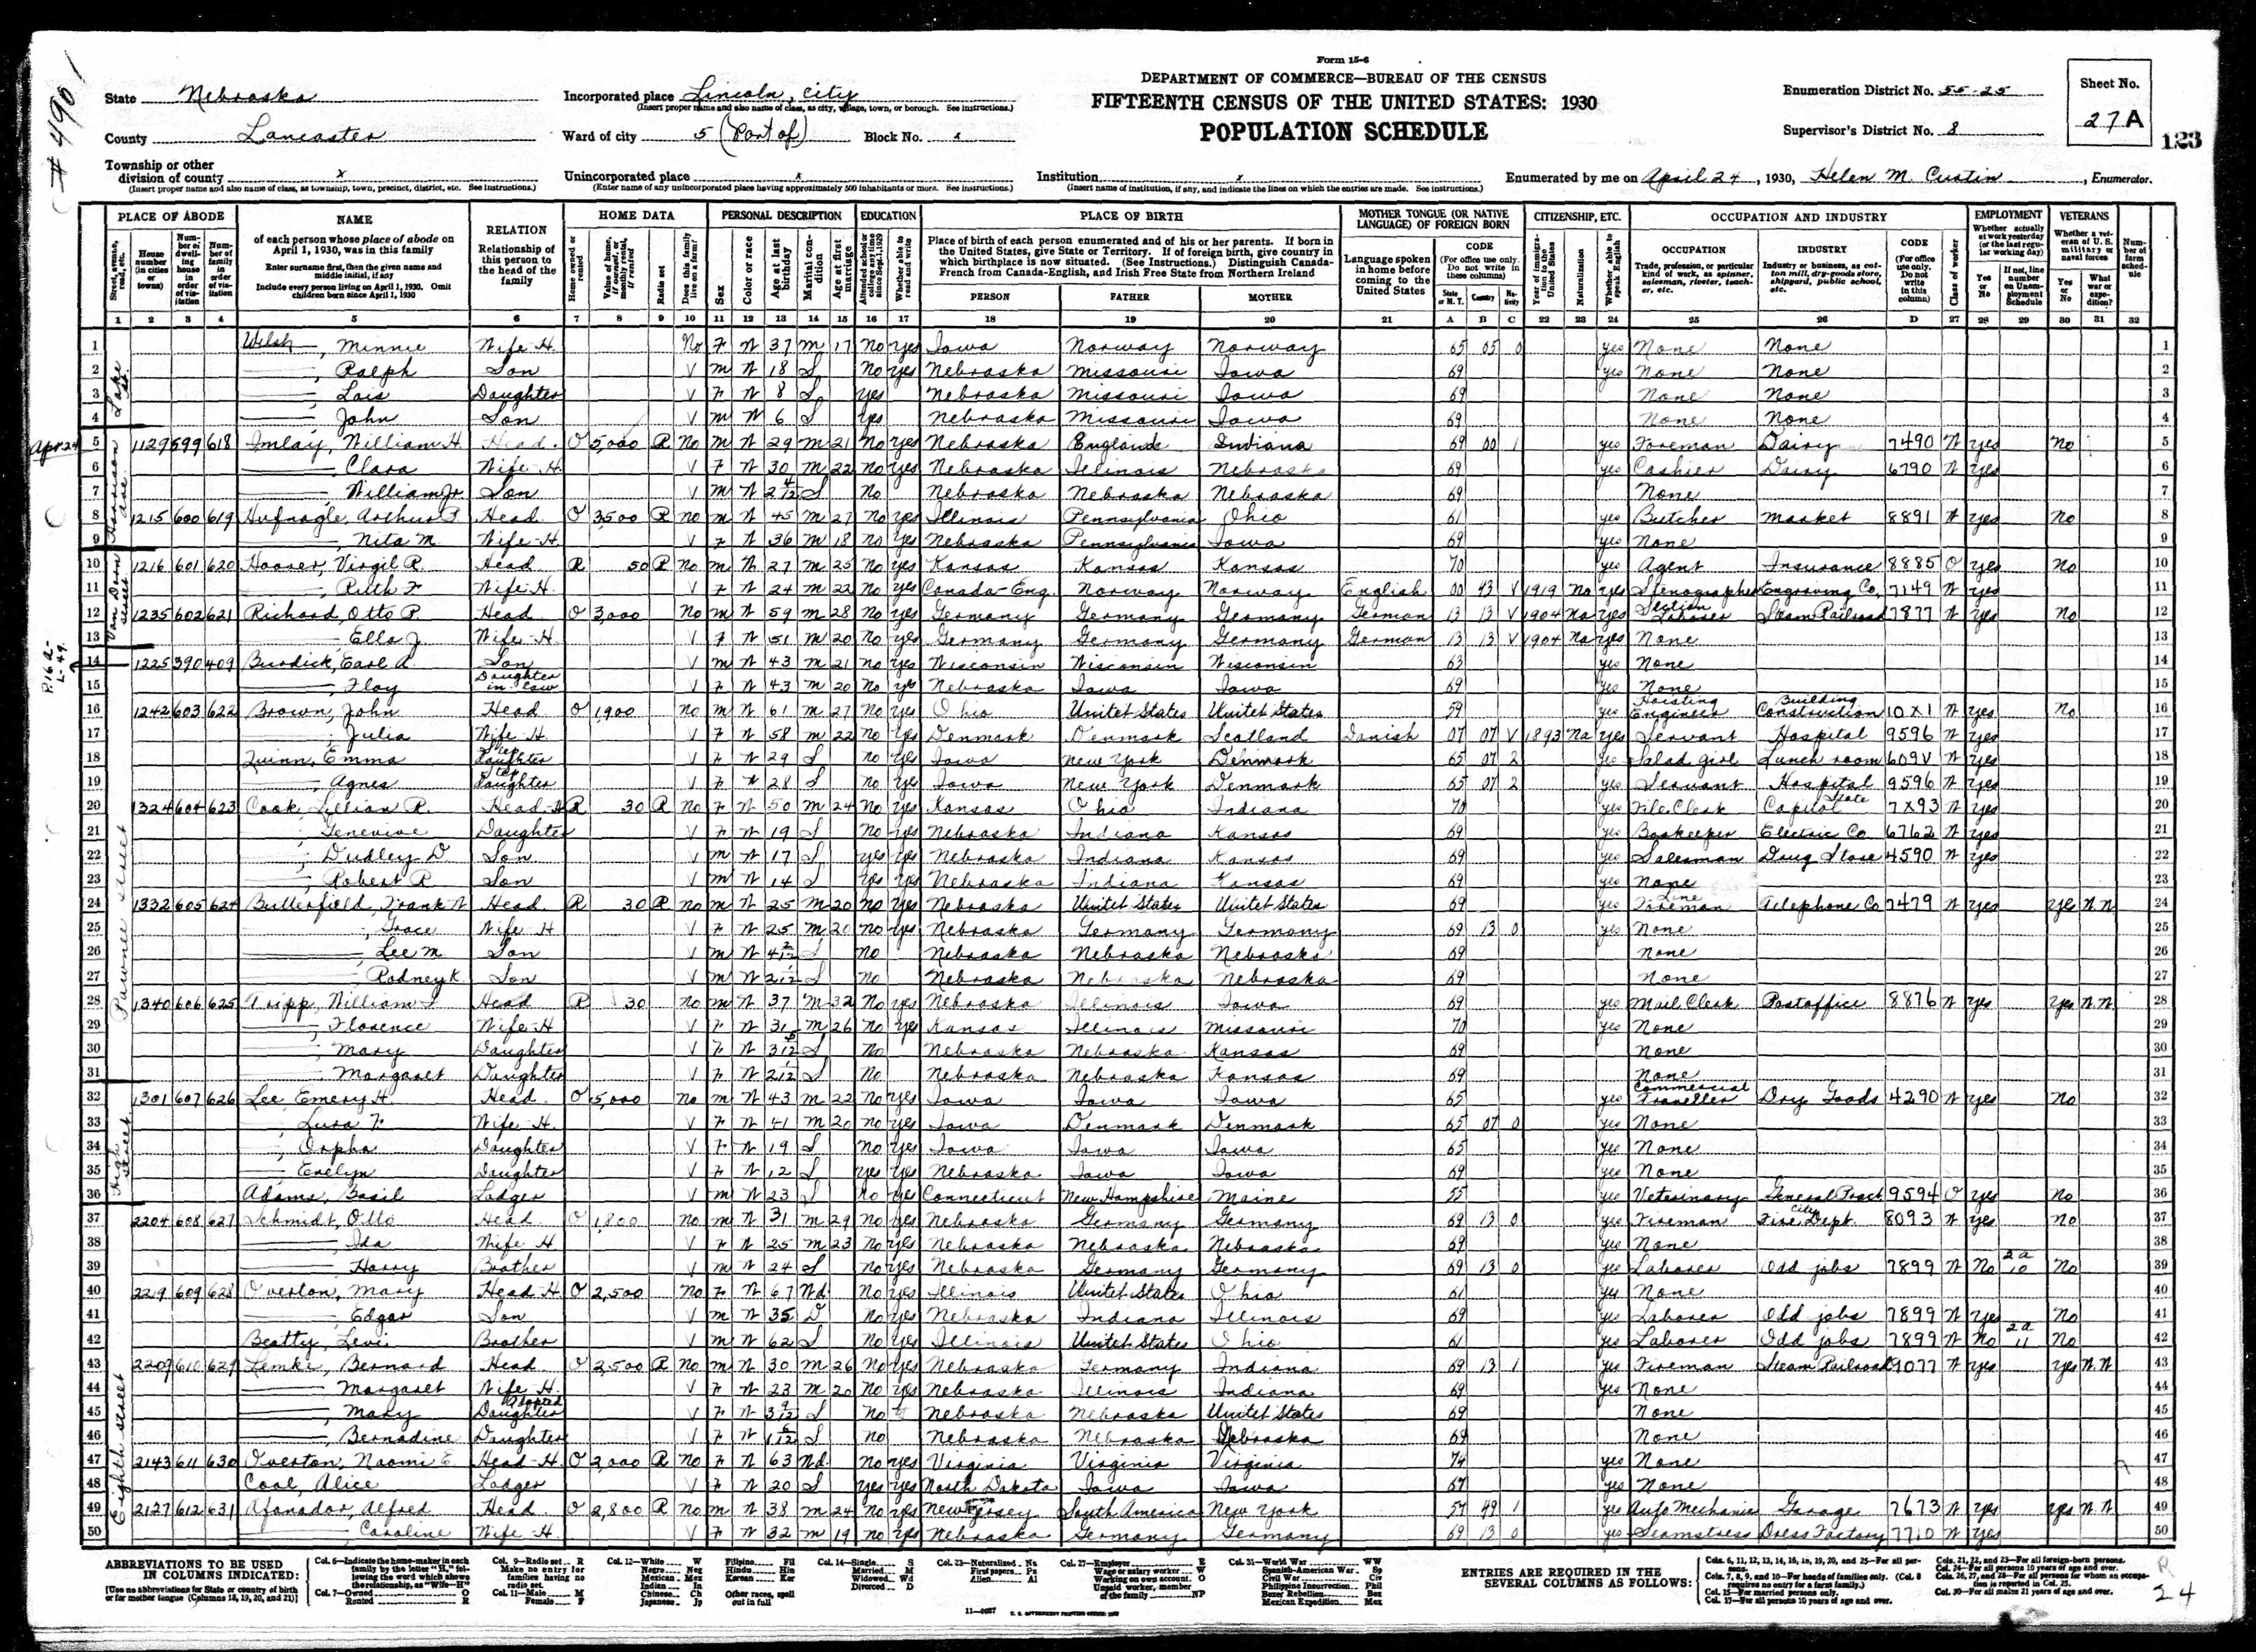 Form 15-6
DEPARTMENT OF COMMERCE—BUREAU OF THE CENSUS
FIFTEENTH CENSUS OF THE UNITED STATES: 1930
POPULATION SCHEDULE
State Nebraska
Incorporated place Lincoln, City
(Insert proper name and also name of class, as city, village, town, or borough. See instructions.)
Enumeration District No. 55-25
Sheet No.
27 A
123
County Lancaster
Ward of city 5 (Part of) Block No. x
Supervisor's District No. 8
Township or other division of county x
(Insert proper name and also name of class, as township, town, precinct, district, etc. See instructions.)
Unincorporated place x
(Enter name of any unincorporated place having approximately 500 inhabitants or more. See instructions.)
Institution x
(Insert name of institution, if any, and indicate the lines on which the entries are made. See instructions.)
Enumerated by me on April 24, 1930, Helen M. Custin, Enumerator.
PLACE OF ABODE NAME RELATION HOME DATA PERSONAL DESCRIPTION EDUCATION PLACE OF BIRTH MOTHER TONGUE (OR NATIVE LANGUAGE) OF FOREIGN BORN CITIZENSHIP, ETC. OCCUPATION AND INDUSTRY EMPLOYMENT VETERANS
1 Welsh, Minnie Wife-H No F W 37 M 17 No yes Iowa Norway Norway 65 05 0 yes None None
2 Ralph Son V M W 18 S No yes Nebraska Missouri Iowa 69 yes None None
3 Lois Daughter V F W 8 S yes Nebraska Missouri Iowa 69 None None
4 John Son V M W 6 S yes Nebraska Missouri Iowa 69 None None
5 1129 599 618 Imlay, William H. Head O 5,000 R No M W 29 M 21 No yes Nebraska England Indiana 69 00 1 yes Foreman Dairy 7490 W yes No
6 Clara Wife-H V F W 30 M 22 No yes Nebraska Illinois Nebraska 69 yes Cashier Dairy 6790 W yes
7 William Jr Son V M W 2 4/12 S No Nebraska Nebraska Nebraska 69 None
8 1215 600 619 Hufnagle, Arthur P Head O 3500 R no M W 45 M 27 No yes Illinois Pennsylvania Ohio 61 yes Butcher Market 8891 W yes No
9 Nita M. Wife-H V F W 36 M 18 no yes Nebraska Pennsylvania Iowa 69 yes None
10 1216 601 620 Hoover, Virgil R. Head R 50 R No M W 27 M 25 No yes Kansas Kansas Kansas 70 yes Agent Insurance 8885 O yes No
11 Ruth F Wife H. V F W 24 M 22 no yes Canada-Eng. Norway Norway English 00 43 V 1919 Na yes Stenographer Engraving Co. 7149 W yes
12 1235 602 621 Richard, Otto P. Head O 3,000 No M W 59 M 28 No yes Germany Germany Germany German 13 13 V 1904 Na yes Section Laborer Steam Railroad 7877 W yes No
13 Ella J. Wife-H V F W 51 M 20 No yes Germany Germany Germany German 13 13 V 1904 Na yes None
14 1225 390 409 Burdick, Earl A. Son V M W 43 M 21 no yes Wisconsin Wisconsin Wisconsin 63 yes None
15 Floy Daughter in law V F W 43 M 20 No yes Nebraska Iowa Iowa 69 yes None
16 1242 603 622 Brown, John Head O 1,900 No M W 61 M 27 No yes Ohio United States United States 59 yes Hoisting Engineer Building Construction 10X1 W yes No
17 Julia Wife H. V F W 58 M 22 no yes Denmark Denmark Scotland Danish 07 07 V 1893 Na yes Servant Hospital 9596 W yes
18 Quinn, Emma Step daughter V F W 29 S no yes Iowa New York Denmark 65 07 2 yes Salad girl Lunch room 609V W yes
19 Agnes Step daughter V F W 28 S no yes Iowa New York Denmark 65 07 2 yes Servant Hospital 9596 W yes
20 1324 604 623 Cook, Lillian R. Head-H R 30 R No F W 50 M 24 No yes Kansas Ohio Indiana 70 yes File Clerk State Capitol 7X93 W yes
21 Genevive Daughter V F W 19 S No yes Nebraska Indiana Kansas 69 yes Bookkeeper Electric Co 6762 W yes
22 Dudley D. Son V M W 17 S yes yes Nebraska Indiana Kansas 69 yes Salesman Drug Store 4590 W yes
23 Robert R. Son V M W 14 S yes yes Nebraska Indiana Kansas 69 yes None
24 1332 605 624 Butterfield, Frank W Head R 30 R no M W 25 M 20 no yes Nebraska United States United States 69 yes Line Foreman Telephone Co 7479 W yes yes W.W
25 Grace Wife H V F W 25 M 20 no yes Nebraska Germany Germany 69 13 0 yes None
26 Lee M Son V M W 4 2/12 S No Nebraska Nebraska Nebraska 69 none
27 Rodney K. Son V M W 2 1/12 S No Nebraska Nebraska Nebraska 69 none
28 1340 606 625 Tripp, William Head R 30 no M W 37 M 32 No yes Nebraska Illinois Iowa 69 yes Mail Clerk Postoffice 8876 W yes yes W.W
29 Florence Wife-H V F W 31 M 26 no yes Kansas Illinois Missouri 70 yes None
30 Mary Daughter V F W 3 S No Nebraska Nebraska Kansas 69 none
31 Margaret Daughter V F W 2 1/12 S No Nebraska Nebraska Kansas 69 none
32 1301 607 626 Lee, Emery H. Head O 5,000 no M W 43 M 22 No yes Iowa Iowa Iowa 65 yes Commercial Traveller Dry Goods 4290 W yes No
33 Lura F. Wife-H. V F W 41 M 20 no yes Iowa Denmark Denmark 65 07 0 yes None
34 Orpha Daughter V F W 19 S No yes Iowa Iowa Iowa 65 yes None
35 Evelyn Daughter V F W 12 S yes yes Nebraska Iowa Iowa 69 yes None
36 Adams, Basil Lodger V M W 23 S no yes Connecticut New Hampshire Maine 55 yes Veterinary General Pract 9594 O yes No
37 2204 608 627 Schmidt, Otto Head O 1,800 no M W 31 M 29 No yes Nebraska Germany Germany 69 13 0 yes Fireman City Fire Dept. 8093 W yes No
38 Ida Wife H V F W 25 M 23 no yes Nebraska Nebraska Nebraska 69 yes None
39 Harry Brother V M W 24 S no yes Nebraska Germany Germany 69 13 0 yes Laborer Odd jobs 7899 W No 2a 10 No
40 2219 609 628 Overton, Mary Head-H O 2,500 No F W 67 Wd. No yes Illinois United States Ohio 61 yes None
41 Edgar Son V M W 35 D No yes Nebraska Indiana Illinois 69 yes Laborer Odd jobs 7899 W yes No
42 Beatty, Levi Brother V M W 62 S No yes Illinois United States Ohio 61 yes Laborer Odd jobs 7899 W No 2a 11 No
43 2207 610 629 Lemke, Bernard Head O 2,500 R No M W 30 M 26 No yes Nebraska Germany Indiana 69 13 1 yes Fireman Steam Railroad 9077 W yes yes W.W
44 Margaret Wife H. V F W 23 M 20 No yes Nebraska Illinois Indiana 69 yes None
45 Mary Adopted Daughter V F W 3 9/12 S No Nebraska Nebraska United States 69 None
46 Bernadine Daughter V F W 1 6/12 S No Nebraska Nebraska Nebraska 69 None
47 2143 611 630 Overton, Naomi E Head-H O 2,000 R No F W 63 Wd. No yes Virginia Virginia Virginia 74 yes None
48 Cool, Alice Lodger V F W 20 S yes yes North Dakota Iowa Iowa 67 yes None
49 2127 612 631 Afanador, Alfred Head O 2,800 R No M W 38 M 24 No yes New Jersey South America New York 57 49 1 yes Auto Mechanic Garage 7673 W yes yes W.W
50 Caroline Wife H. V F W 32 M 19 no yes Nebraska Germany Germany 69 13 0 yes Seamstress Dress Factory 7710 W yes
Harrison ave
Van Dorn street
Pawnee street
High street
Eighth street
Apr 24
ABBREVIATIONS TO BE USED IN COLUMNS INDICATED:
[Use no abbreviations for State or country of birth or for mother tongue (Columns 18, 19, 20, and 21)]
ENTRIES ARE REQUIRED IN THE SEVERAL COLUMNS AS FOLLOWS:
24